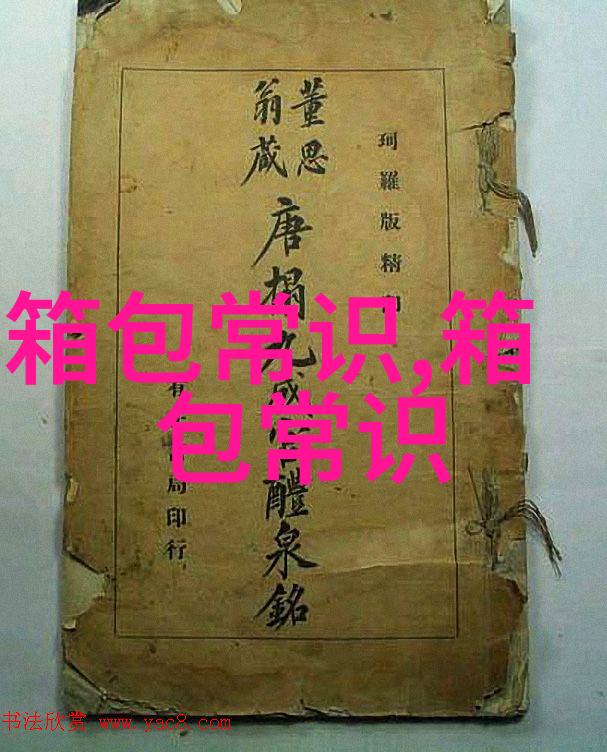 珂羅版精
董思
翁藏
唐搨九成醴泉銘
局印行
箱包常识,箱
包常识
书法欣赏 www.yac8.com